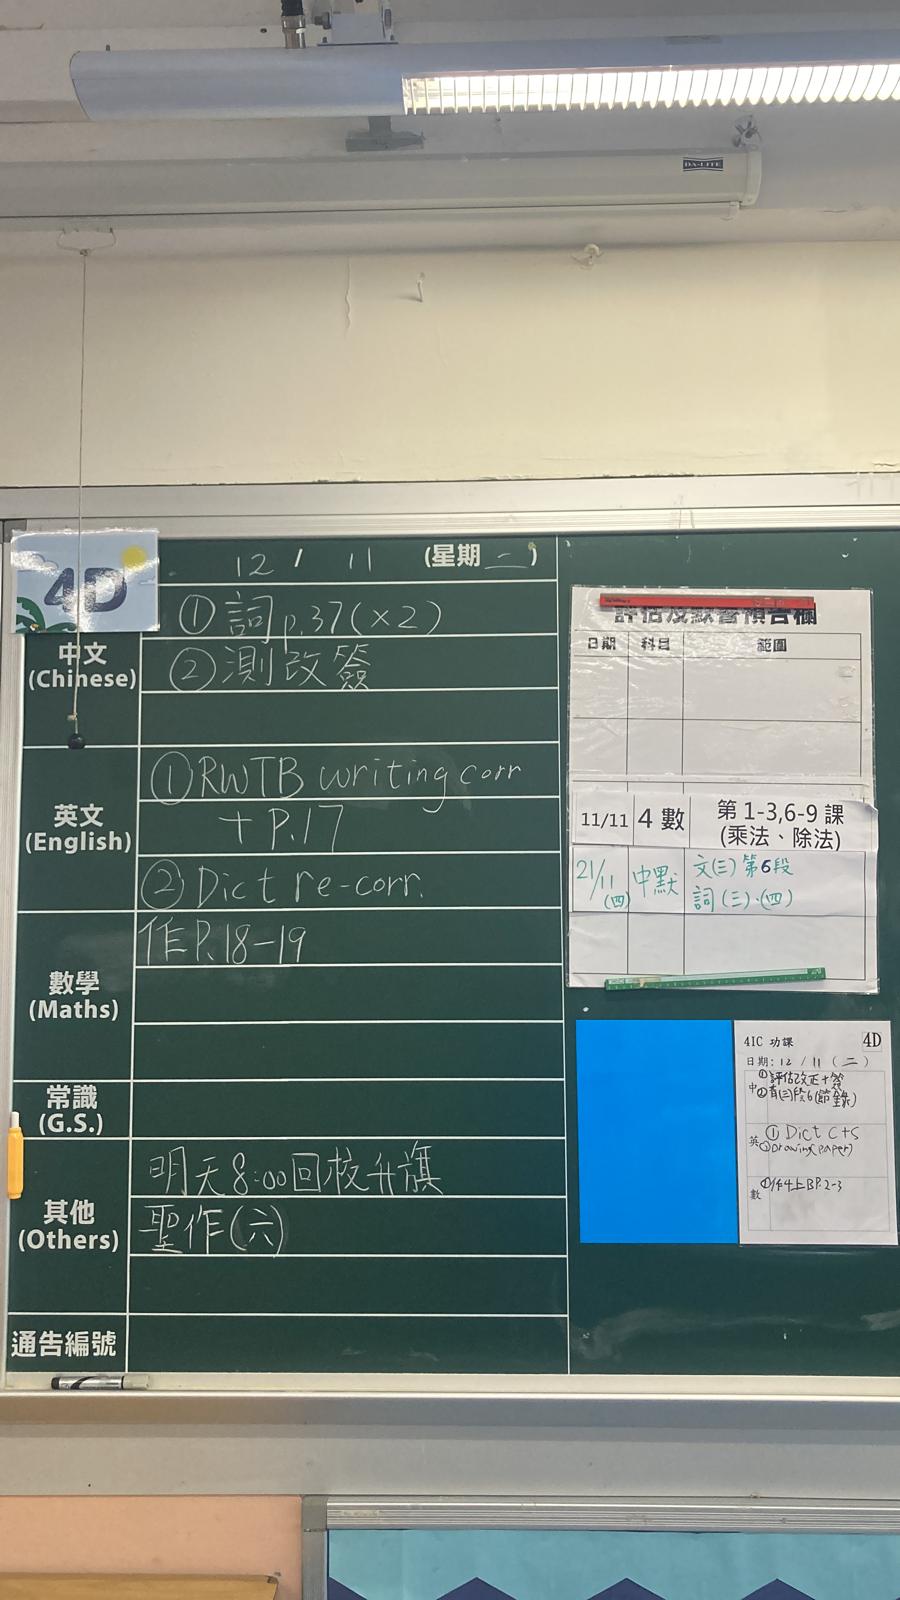 DA-LITE
4D
12 / 11 (星期二)
中文
(Chinese)
①詞p.37(×2)
②測改簽
英文
(English)
①RWTB writing corr
+P.17
②Dict re-corr.
數學
(Maths)
作P.18-19
常識
(G.S.)
其他
(Others)
明天8:00回校升旗
聖作(六)
通告編號
評估及默書預告欄
日期 科目 範圍
11/11 4 數 第 1-3,6-9 課
(乘法、除法)
21/11(四) 中默 文(三)第6段
詞(三)、(四)
4IC 功課 4D
日期: 12 / 11 (二)
中 ①評估改正+簽
②背(三)段6(節錄)
英 ①Dict C+S
②Drawing(paper)
數 ①作4上B P.2-3